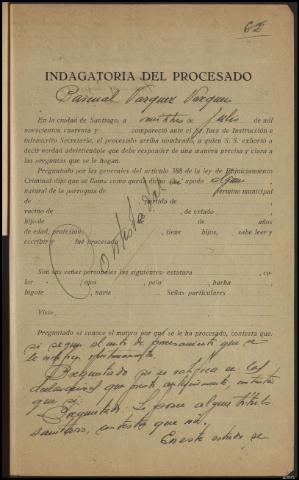 62
INDAGATORIA DEL PROCESADO
Pascual Vazquez Vazquez
En la ciudad de Santiago, a veintitres de Julio de mil
novecientos cuarenta y compareció ante el Sr. Juez de Instrucción e
infrascrito Secretario, el procesado arriba nombrado, a quien S. S. exhortó a
decir verdad advirtiéndole que debe responder de una manera precisa y clara a
las preguntas que se le hagan.
Preguntado por las generales del artículo 388 de la ley de Enjuiciamiento
Criminal dijo que se llama como queda dicho apodo
natural de la parroquia de término municipal
de Partido de
vecino de de estado
hijo de de de años
de edad, profesión tiene hijos, sabe leer y
escribir y fué procesado
Contestó
Son sus señas personales las siguientes: estatura , co-
lor , ojos , pelo , barba
bigote , nariz Señas particulares
Viste
Preguntado si conoce el motivo por que se le ha procesado, contesta que:
si segun el auto de procesamiento que se
le notifica
Preguntado se ratifica en las
declaraciones que prestó contesta
que si.
Preguntado: Si posee algun titulo
sanitario, contesta que no.
En este estado se